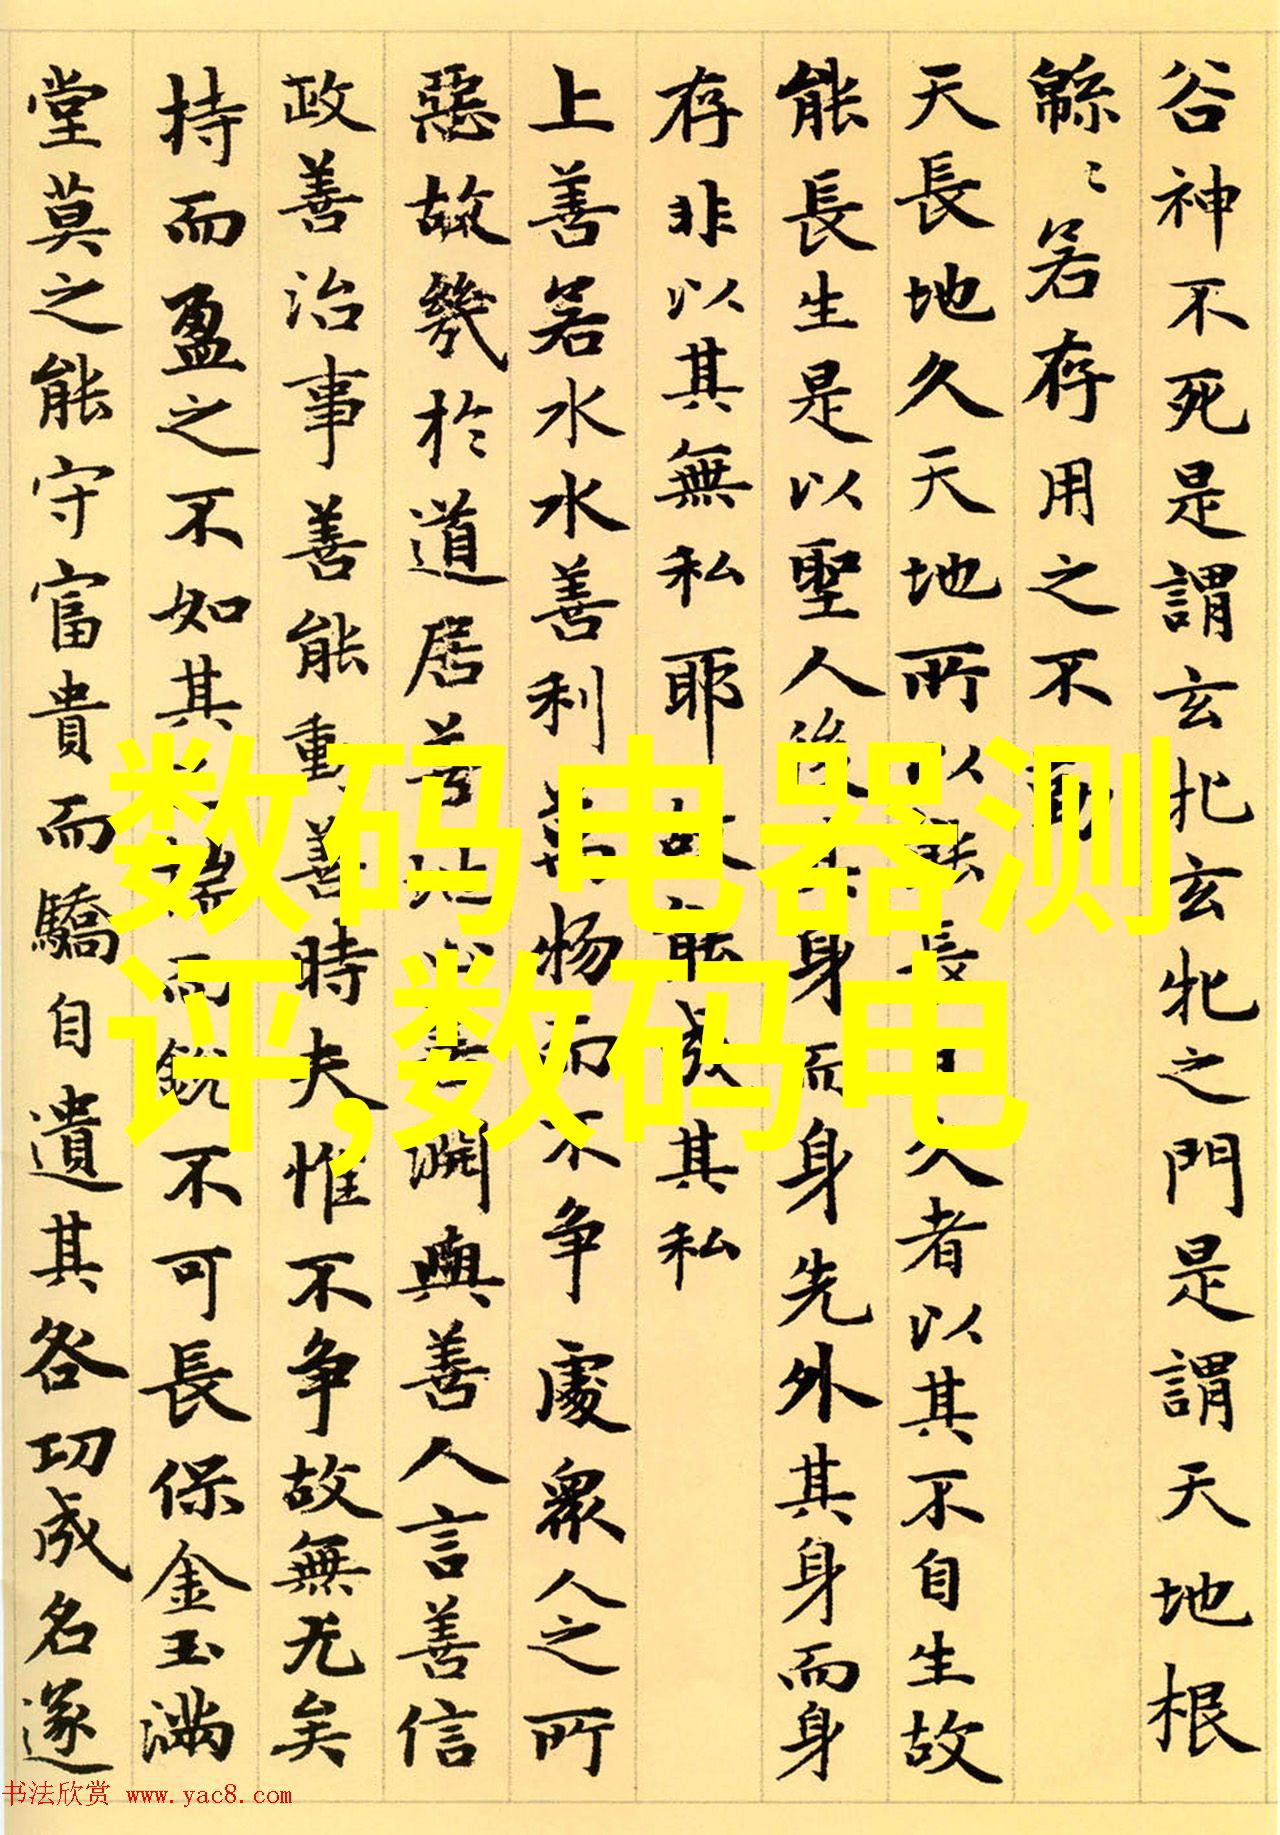 谷神不死是謂玄牝玄牝之門是謂天地根
緜〻若存用之不勤
天長地久天地所以能長且久者以其不自生故
能長生是以聖人後其身而身先外其身而身
存非以其無私耶故能成其私
上善若水水善利萬物而不争處眾人之所
惡故幾於道居善地心善淵與善人言善信
政善治事善能動善時夫惟不争故無尤矣
持而盈之不如其已揣而銳不可長保金玉滿
堂莫之能守富貴而驕自遺其咎功成名遂
数码电器测
评,数码电
书法欣赏 www.yac8.com